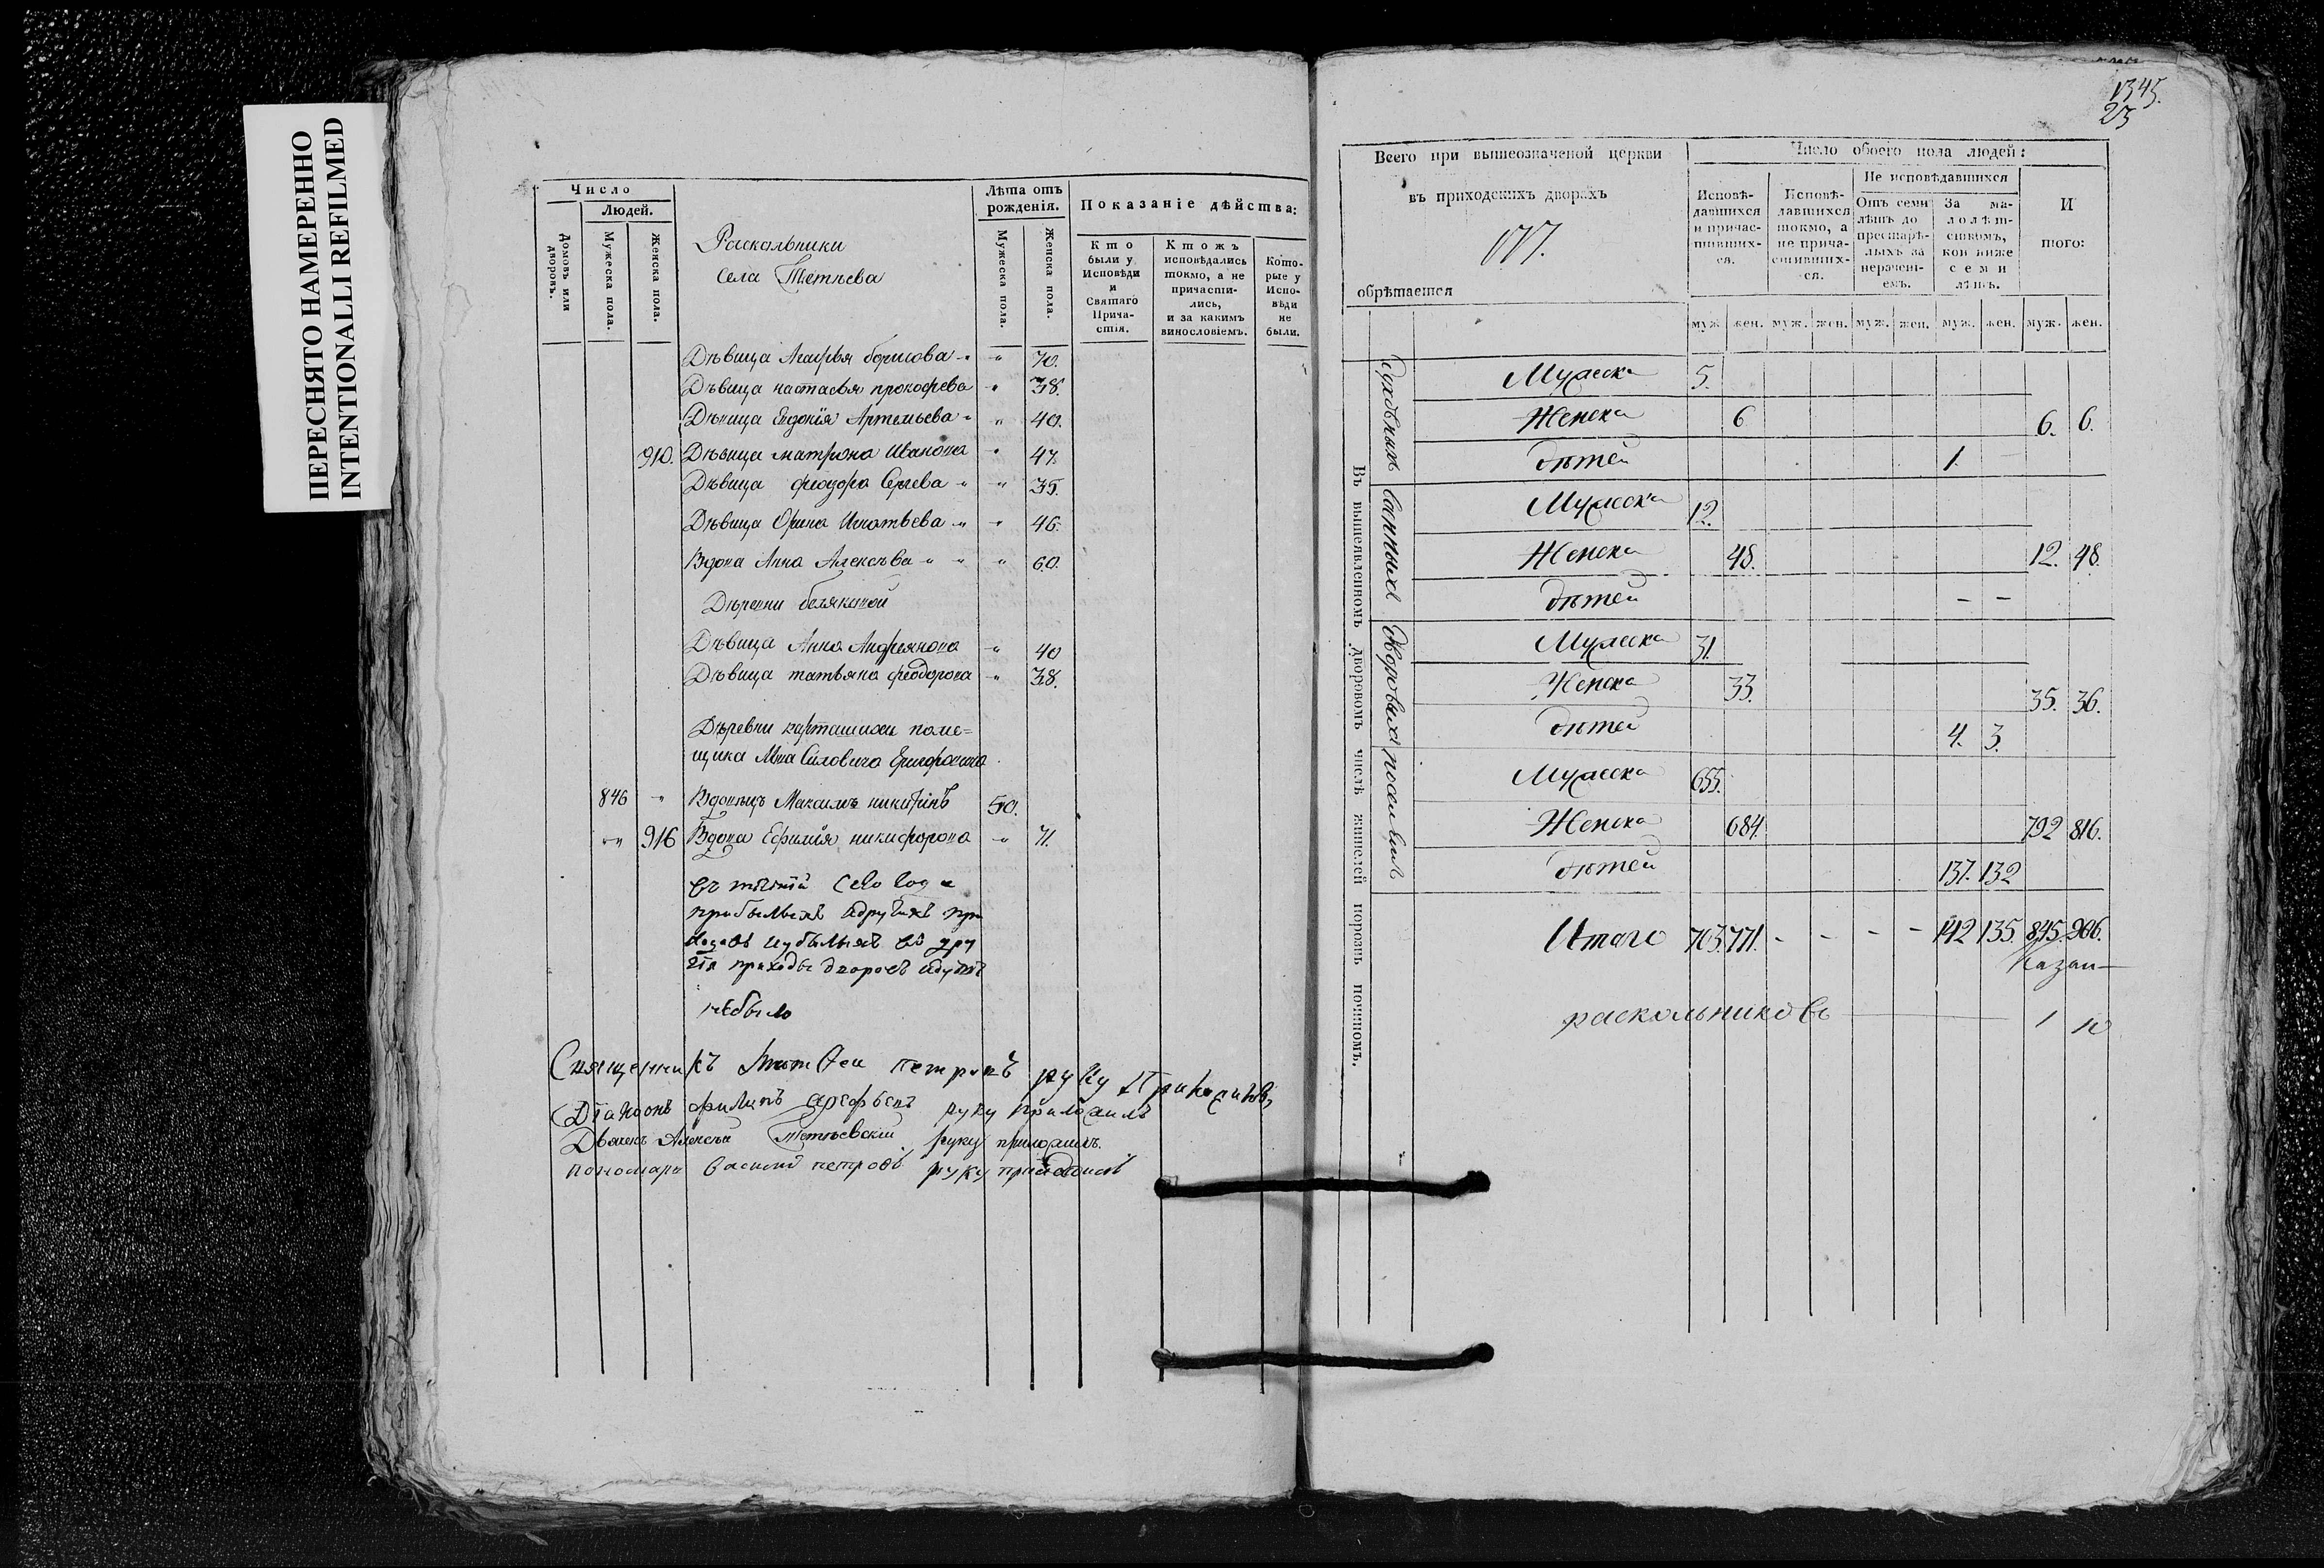 ПЕРЕСНЯТО НАМЕРЕННО
INTENTIONALLI REFILMED
Число
Людей.
Домовъ или дворовъ.
Мужеска пола.
Женска пола.
Раскольники
села Тетѣева
Лѣта отъ рождения.
Мужеска пола.
Женска пола.
Показаніе дѣйства:
Кто были у Исповѣди и Святаго Прича-стія.
Ктожъ исповѣдались токмо, а не причасти-лись, и за какимъ винословіемъ.
Кото-рые у Испо-вѣди не были.
Дѣвица Агафья борисова " 70.
Дѣвица настасья прокофева " 38.
Дѣвица Евдокія Артемьева " 40.
910. Дѣвица матрона Иванова " 47.
Дѣвица феодора Сергева " 35.
Дѣвица Орина Игнатьева " 46.
Вдова Анна Алексѣва " 60.
Дѣревни
Дѣвица Анна Андреянова " 40
Дѣвица татьяна феодорова " 38.
Дѣревни карташихи поме=
щика
846 " Вдовецъ Максимъ никитинъ 50.
" 916 Вдова Ефимія никифорова " 71.
въ теченіи сего года
прибылыхъ
въ дру
гія приходы дворовъ
небыло
Священникъ петровъ руку приложилъ
Діаконъ филипъ арефьевъ руку приложилъ
Дьячекъ Алексѣй Тетѣевскій руку приложилъ.
пономарь василей петровъ руку приложилъ
1345.
23
Всего при вышеозначеной церкви
въ приходскихъ дворахъ
обрѣтается
Число обоего пола людей:
Исповѣ-давшихся и причас-тивших-ся.
Исповѣ-давшихся токмо, а не прича-стивших-ся.
Не исповѣдавшихся
Отъ семи лѣтъ до престарѣ-лыхъ за нерачені-емъ.
За ма-лолѣт-ствомъ, кои ниже семи лѣтъ.
И того:
муж. жен. муж. жен. муж. жен. муж. жен. муж. жен.
Въ вышеявленномъ дворовомъ числѣ жителей порознь починомъ.
Духовныхъ
Мужеска 5.
Женска 6 6. 6.
дѣтей 1.
Мужеска 12.
Женска 48. 12. 48.
дѣтей – –
Дворовыхъ
Мужеска 31.
Женска 33. 35. 36.
дѣтей 4. 3.
поселянъ
Мужеска 655.
Женска 684. 792 816.
дѣтей 137. 132
Итого 703. 771. - - - - 142 135. 845. 906.
раскольниковъ 1 10